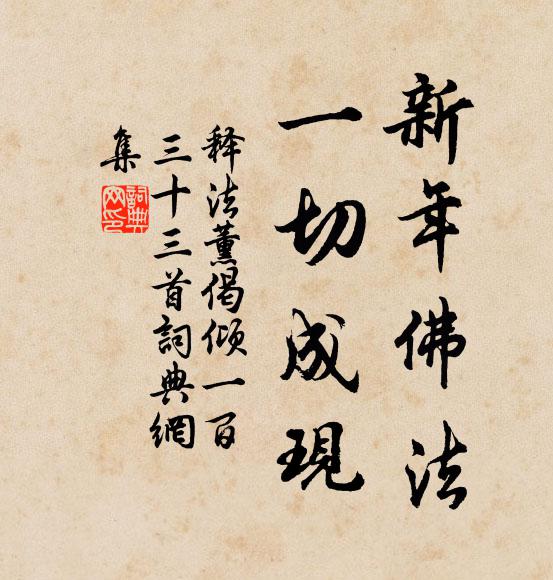 新年佛法
一切成現
释法薰偈倾一百
三十三首詞典網
集
詞典网印